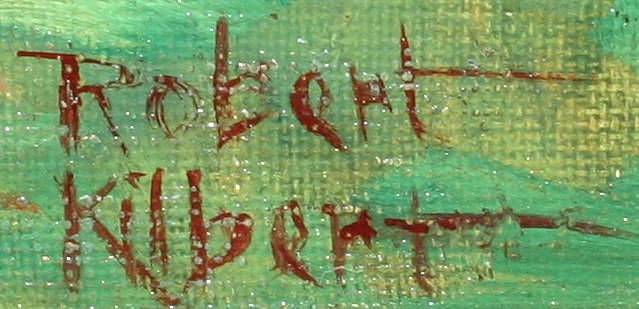 Robert
Kilbert